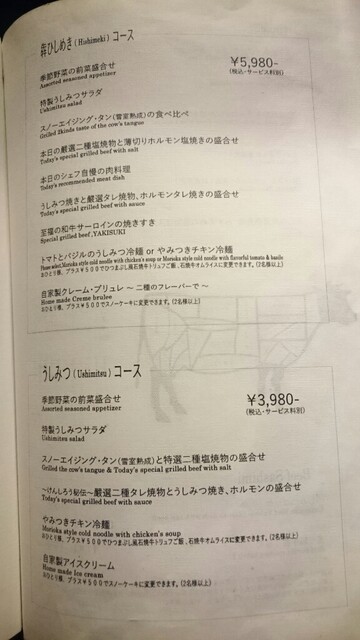 犇ひしめき(Hishimeki)コース
¥5,980-
(税込・サービス料別)
季節野菜の前菜盛合せ
Assorted seasoned appetizer
特製うしみつサラダ
Ushimitsu salad
スノーエイジング・タン(雪室熟成)の食べ比べ
Grilled 2kinds taste of the cow's tangue
本日の厳選二種塩焼物と薄切りホルモン塩焼きの盛合せ
Today's special grilled beef with salt
本日のシェフ自慢の肉料理
Today's recommended meat dish
うしみつ焼きと厳選タレ焼物、ホルモンタレ焼きの盛合せ
Today's special grilled beef with sauce
至福の和牛サーロインの焼きすき
Special grilled beef,YAKISUKI
トマトとバジルのうしみつ冷麺 or やみつきチキン冷麺
Please select,Morioka style cold noodle with chicken's soup or Morioka style cold noodle with flavorful tomato & basils
おひとり様、プラス¥500でひつまぶし風石焼牛トリュフご飯、石焼牛オムライスに変更できます。(2名様以上)
自家製クレーム・ブリュレ 〜 二種のフレーバーで 〜
Home made Creme brulee
おひとり様、プラス¥500でスノーケーキに変更できます。(2名様以上)
うしみつ(Ushimitsu)コース
¥3,980-
(税込・サービス料別)
季節野菜の前菜盛合せ
Assorted seasoned appetizer
特製うしみつサラダ
Ushimitsu salad
スノーエイジング・タン(雪室熟成)と特選二種塩焼物の盛合せ
Grilled the cow's tangue & Today's special grilled beef with salt
〜げんしろう秘伝〜厳選二種タレ焼物とうしみつ焼き、ホルモンの盛合せ
Today's special grilled beef with sauce
やみつきチキン冷麺
Morioka style cold noodle with chicken's soup
おひとり様、プラス¥500でひつまぶし風石焼牛トリュフご飯、石焼牛オムライスに変更できます。(2名様以上)
自家製アイスクリーム
Home made Ice cream
おひとり様、プラス¥500でスノーケーキに変更できます。(2名様以上)